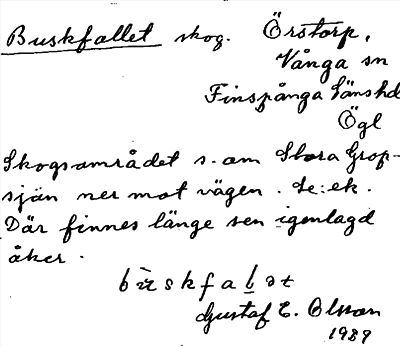 Buskfallet skog. Örstorp,
Vånga sn
Finspånga länshd
Ögl
Skogsområdet s. om Stora Grop-
sjön ner mot vägen. Se: ek.
Där finnes länge sen igenlagd
åker.
Gustaf E. Olsson
1989